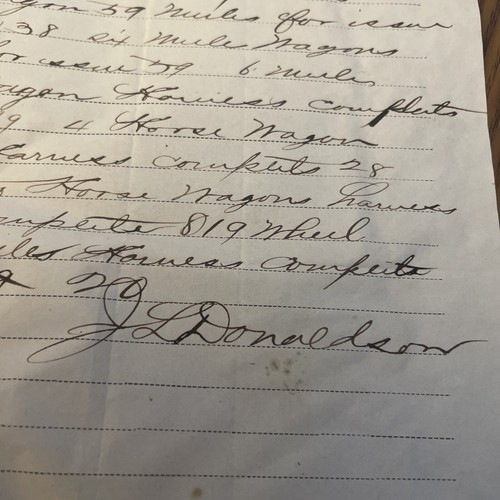 39 Mules for issue
38 six Mule Wagons
for issue 59 6 Mules
Wagon Harness complete
9 4 Horse Wagon
Harness complete 28
Horse Wagons harness
complete 819 Wheel
Mules Harness complete
J L Donaldson